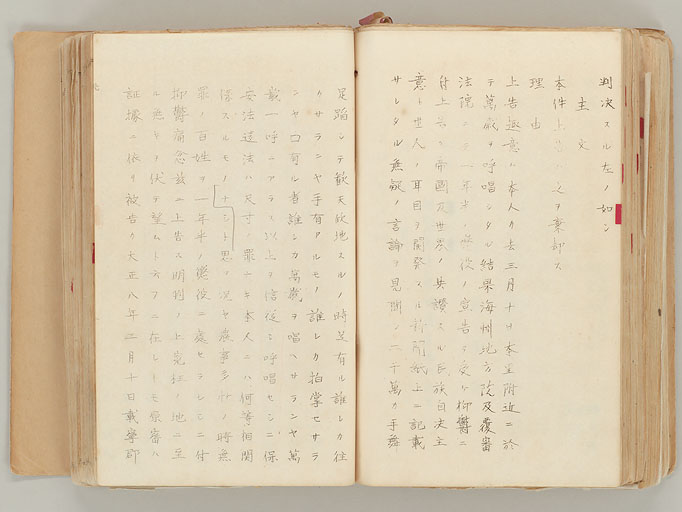 判決スル左ノ如シ
主文
本件上告ハ之ヲ棄却ス
理由
上告趣意ハ本人カ去三月十日本里附近ニ於
テ萬歳ヲ呼唱シタル結果海州地方院及覆審
法院ニテ一年半ノ懲役ノ宣告ヲ受ケ抑鬱ニ
付上告ス帝國及世界ノ共讃スル民族自決主
意ト世人ノ耳目ヲ開発スル新聞紙上ニ記載
サレタル無疑ノ言論ヲ見聞シ二千萬カ手舞
足蹈シテ歓天欣地スルノ時足有ル誰レカ往
カサランヤ手有アルモノ誰レカ拍掌セサラ
ンヤ口有ル者誰レカ萬歳ヲ唱ヘサランヤ萬
歳一呼ニアラス以上ヲ信従シ呼唱セシニ保
安法違法ハ尺寸ノ罪ナキ本人ニハ何等相関
係スルモノナシト思フ況ヤ農事多忙ノ時無
罪ノ百姓ヲ一年半ノ懲役ニ處セラレシニ付
抑鬱痛忿茲ニ上告ス明判ノ上冤枉ノ地ニ至
ル無キヲ伏テ望ムト云フニ在レトモ原審ハ
証據ニ依リ被告カ大正八年三月十日載寧郡